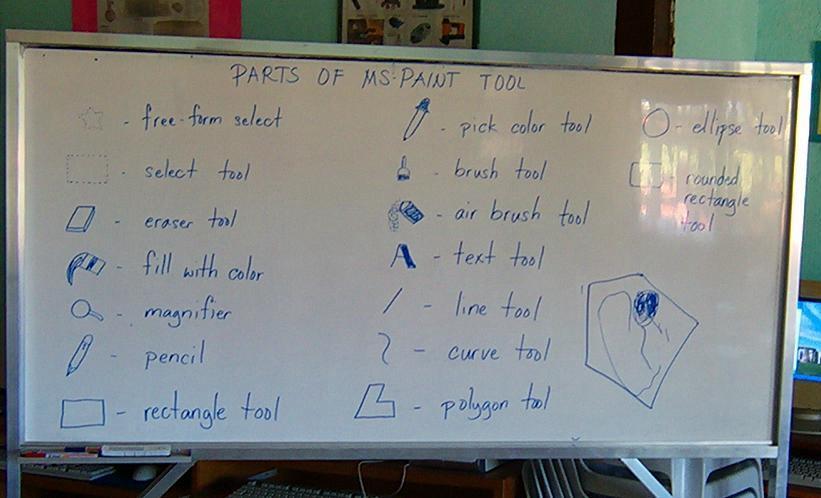 PARTS OF MS-PAINT TOOL
- free-form select
- select tool
- eraser tool
- fill with color
- magnifier
- pencil
- rectangle tool
- pick color tool
- brush tool
- air brush tool
A - text tool
- line tool
- curve tool
- polygon tool
- ellipse tool
- rounded
rectangle
tool